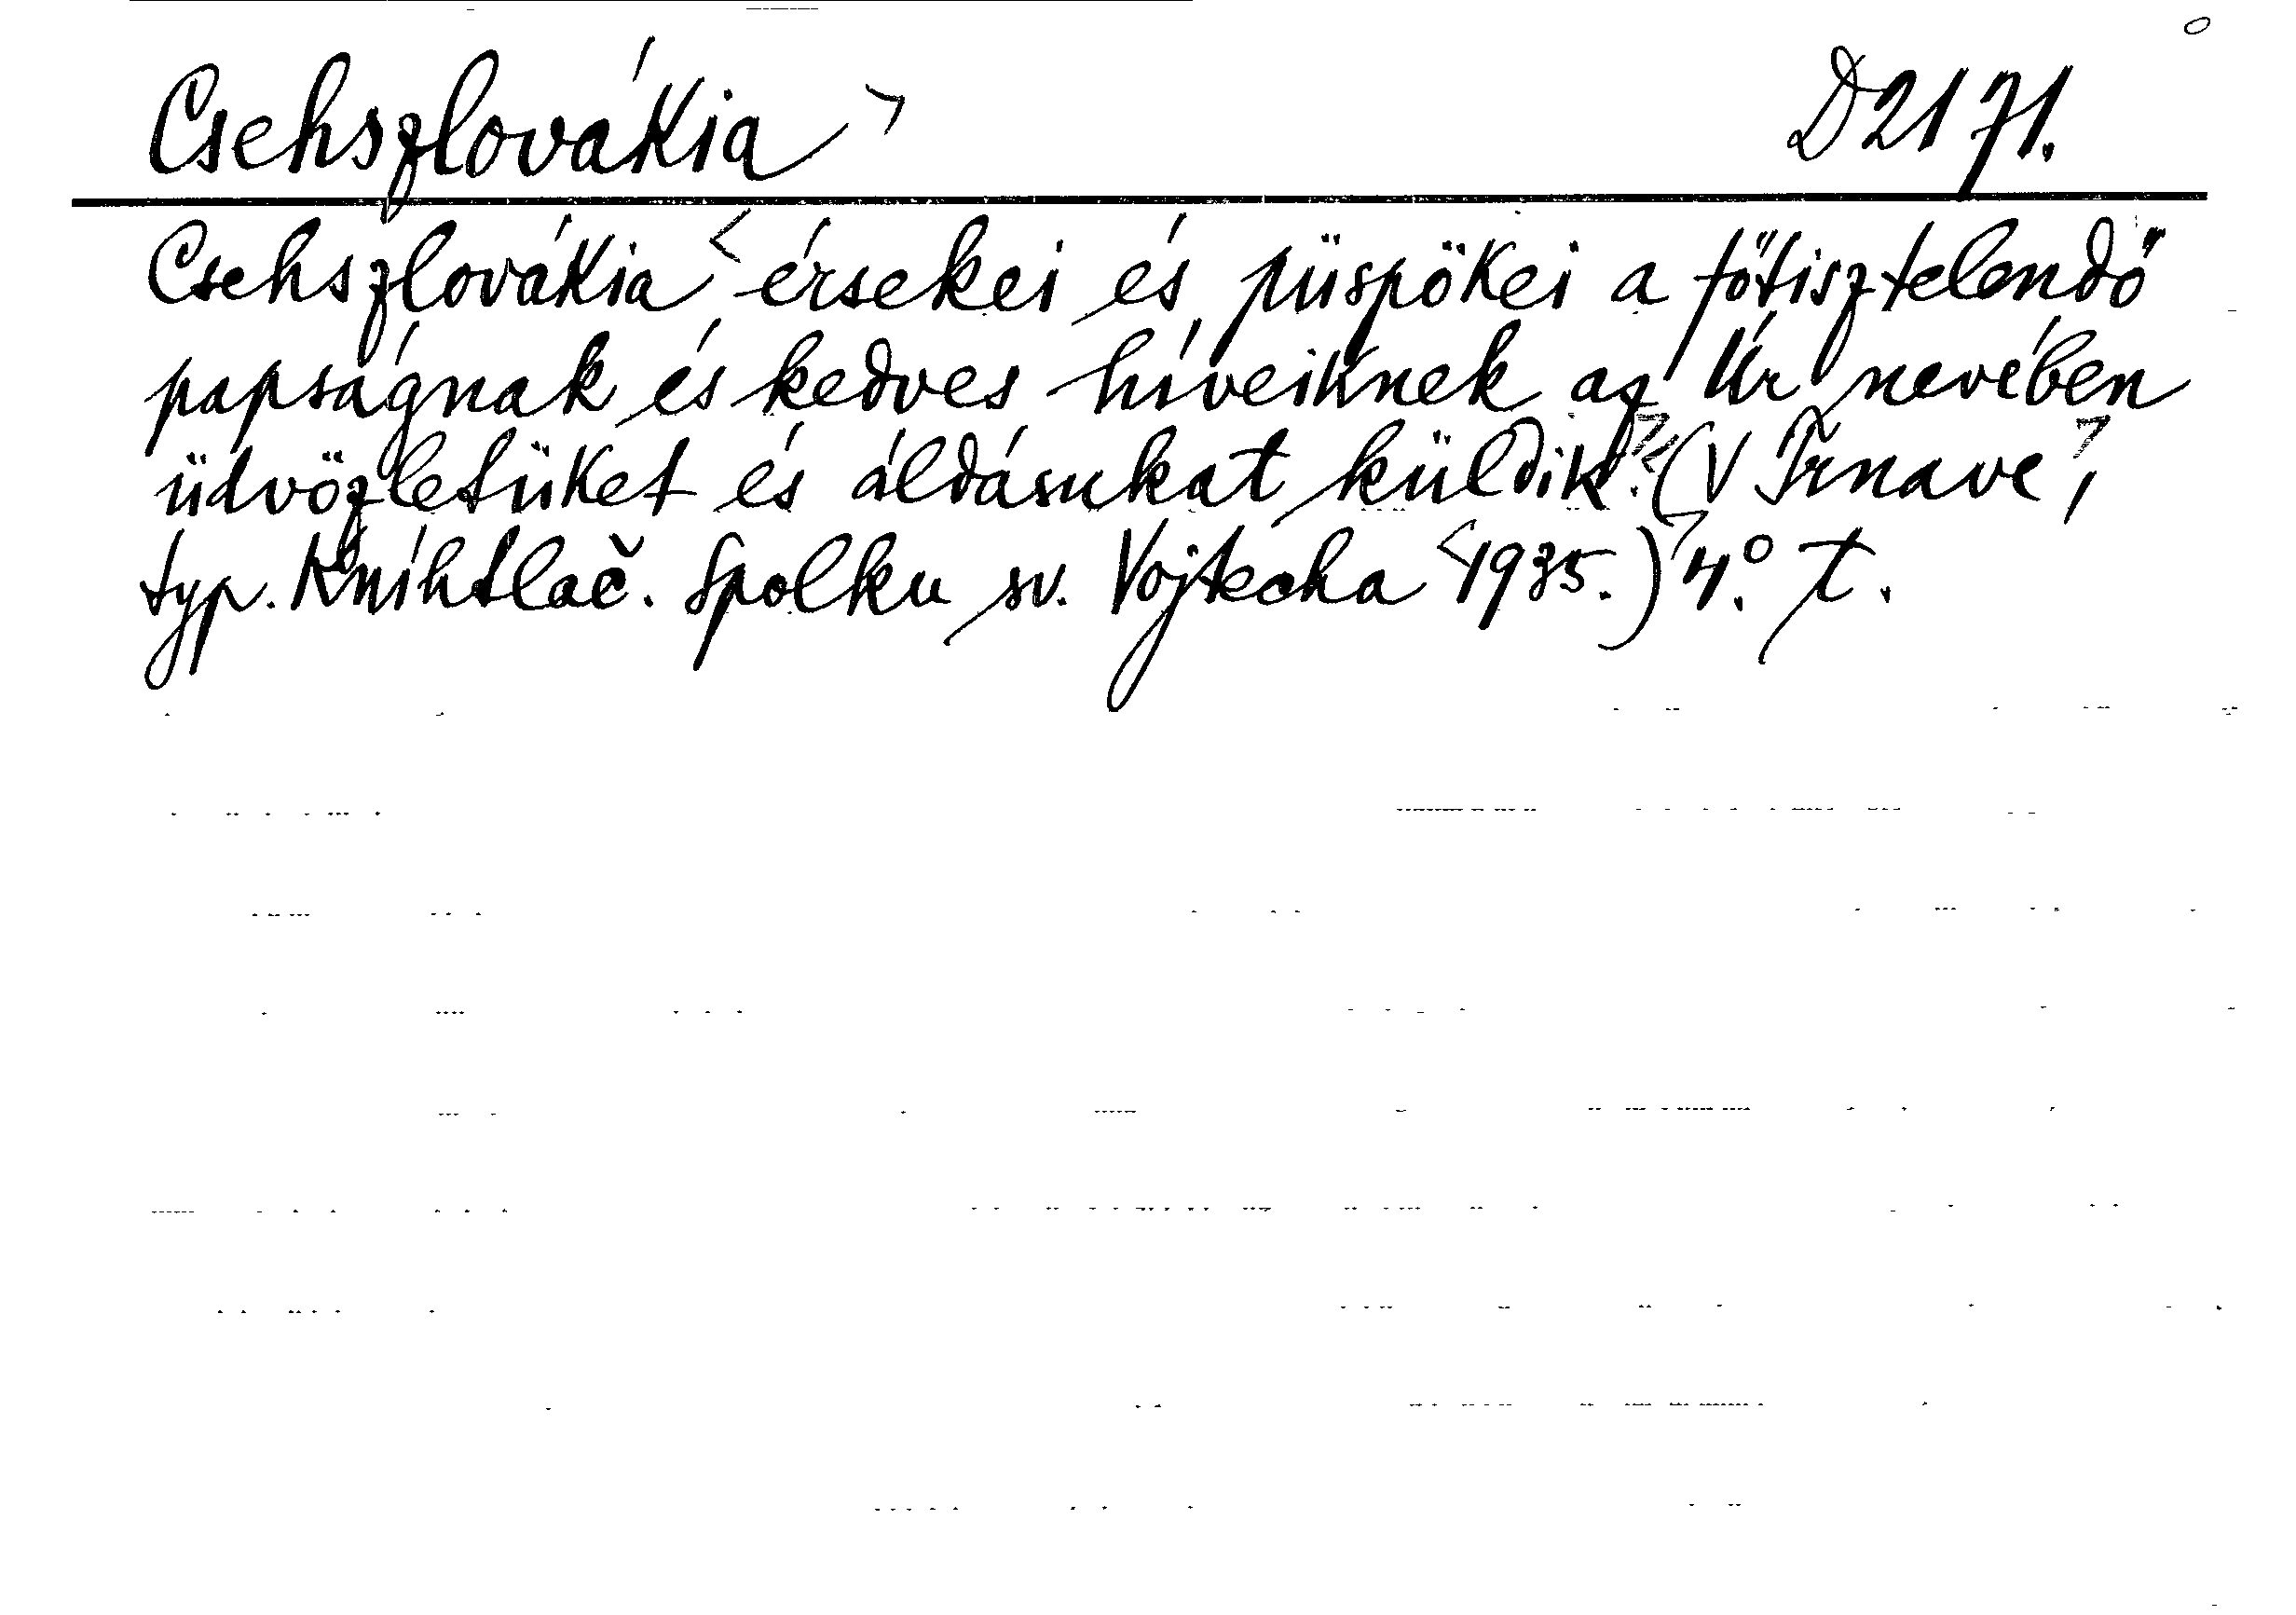 Csehszlovákia D 2171.
Csehszlovákia érsekei és püspökei a főtisztelendő
papságnak és kedves híveiknek az Úr nevében
üdvözletüket és áldásukat küldik. (V Trnave,
typ. Kníhtlač. Spolku sv. Vojtecha 1935.) 4.° t.